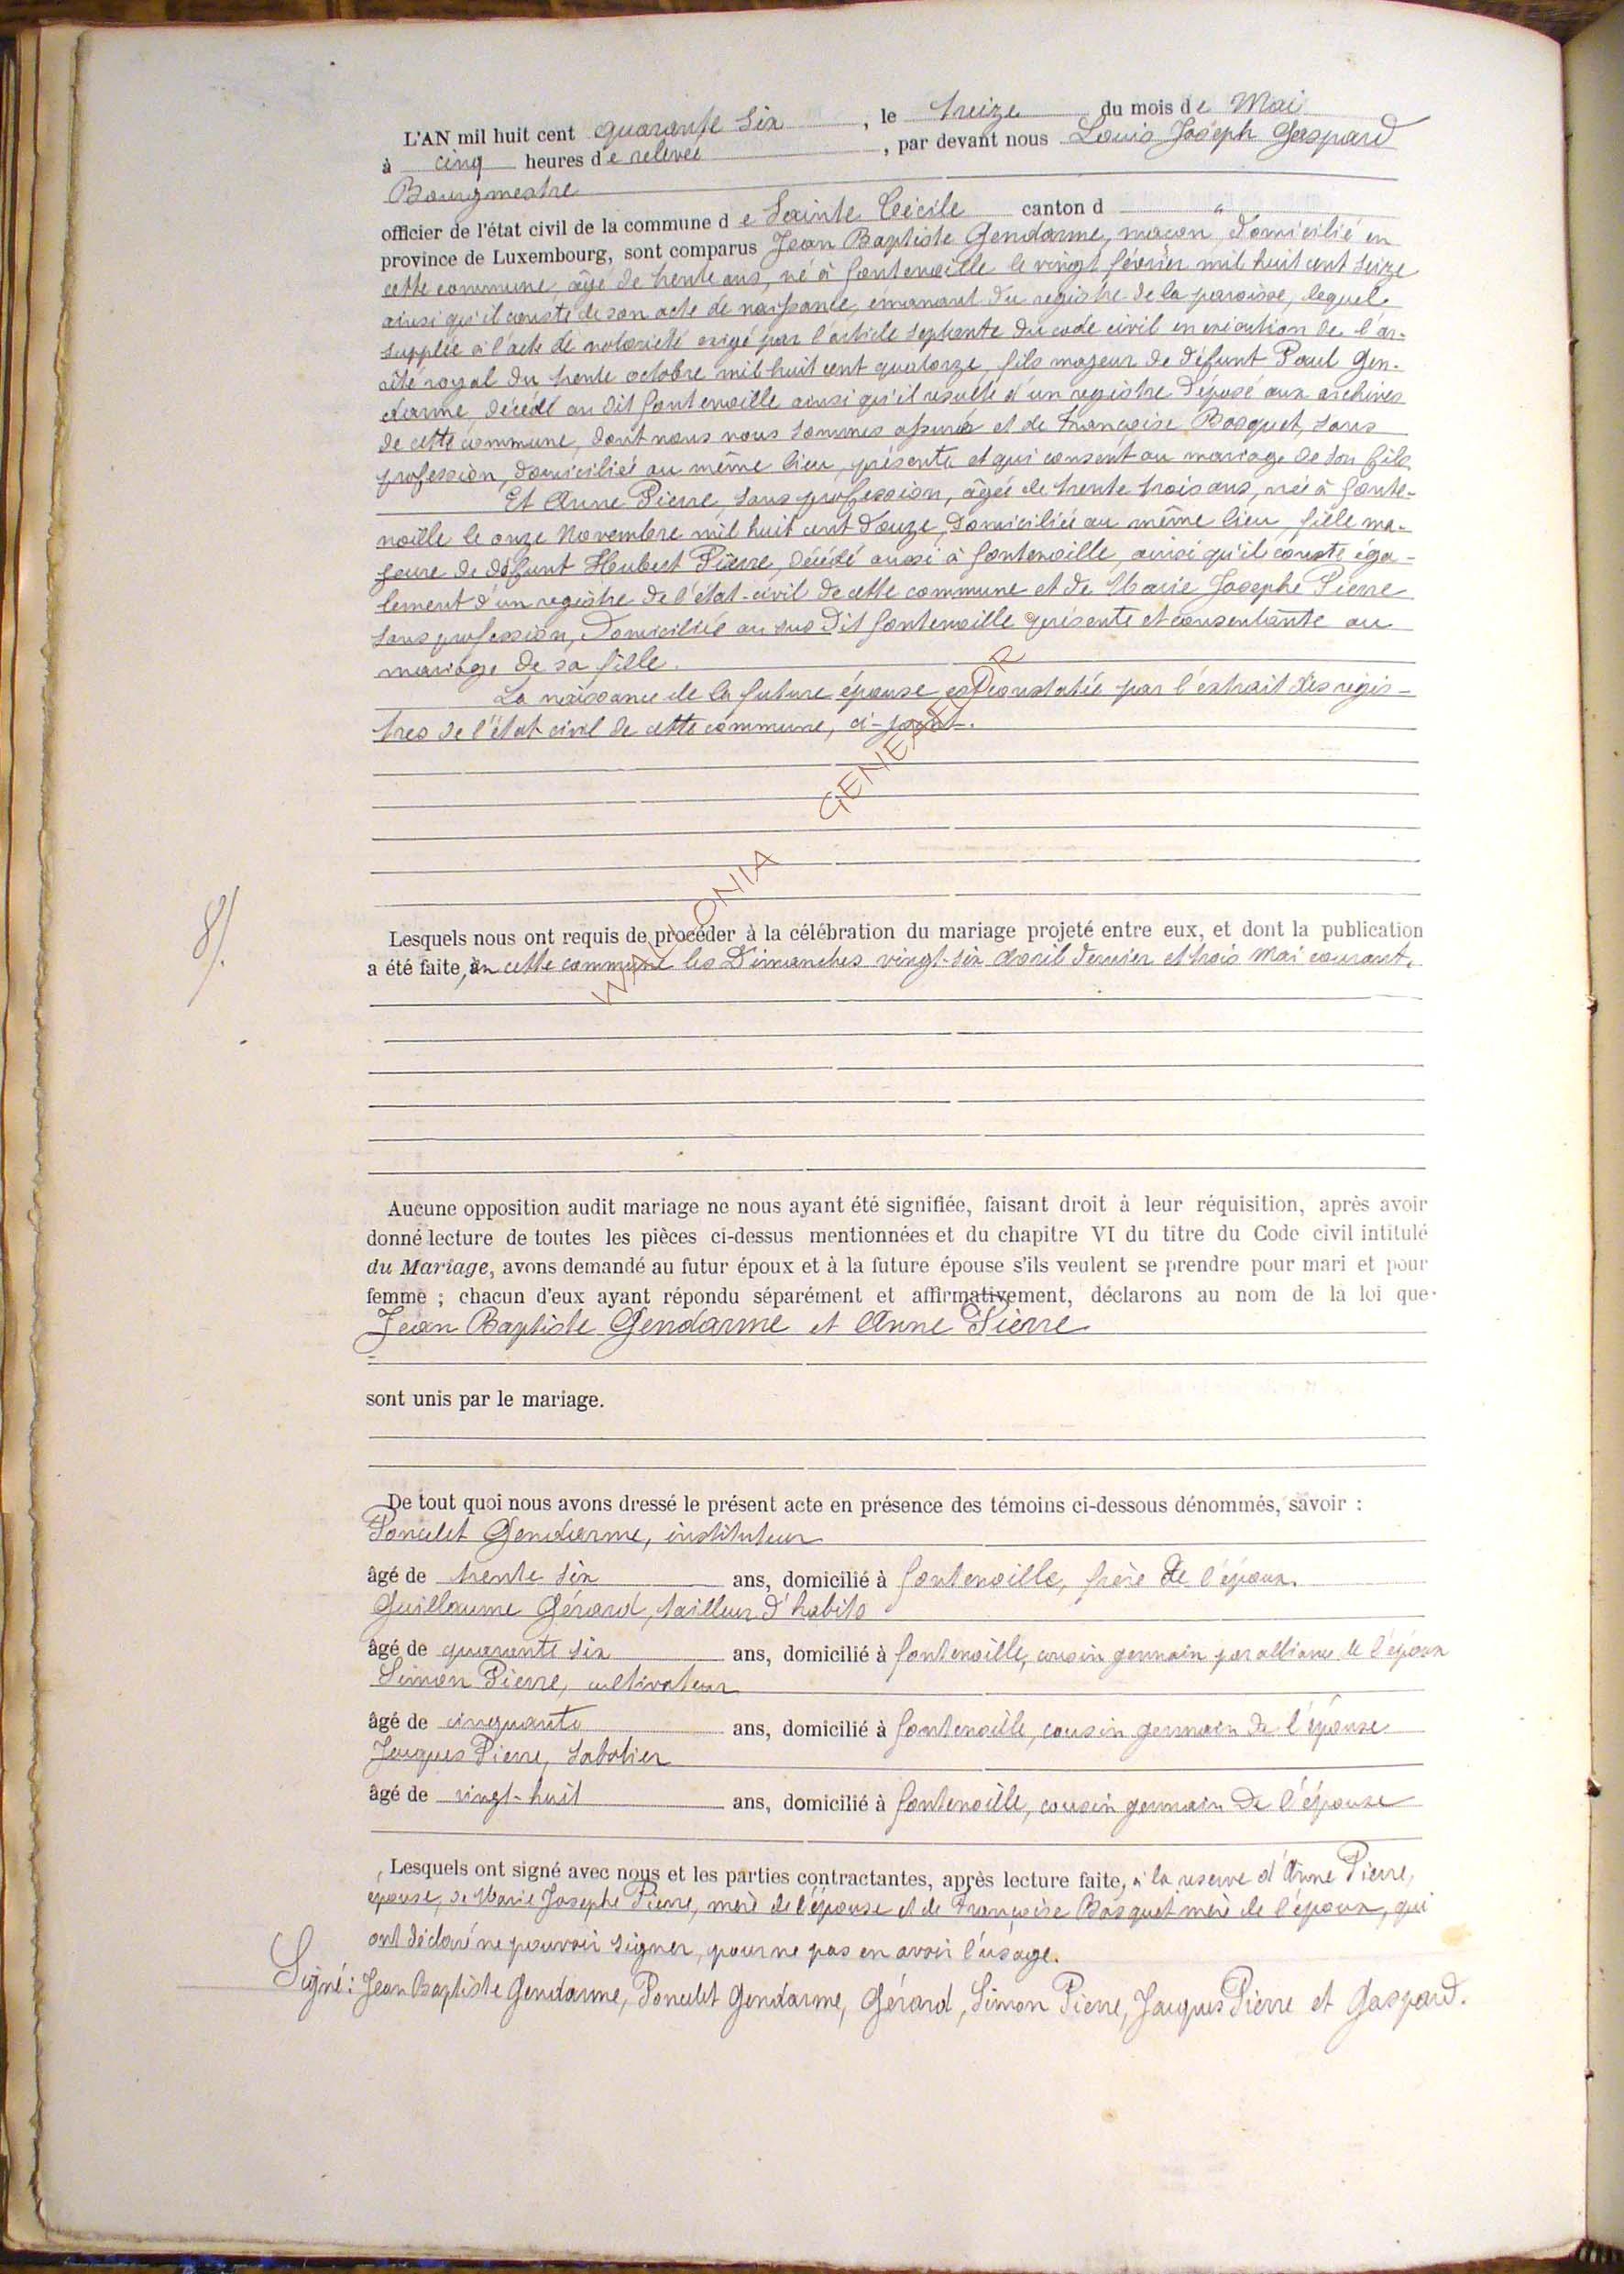 L'AN mil huit cent quarante six, le treize du mois de Mai
à cinq heures de relevée, par devant nous Louis Joseph Gaspard
Bourgmestre
officier de l'état civil de la commune de Sainte Cécile canton d "
province de Luxembourg, sont comparus Jean Baptiste Gendarme, maçon, domicilié en
cette commune, âgé de trente ans, né à fontenoille le vingt février mil huit cent seize
ainsi qu'il conste de son acte de naissance, émanant du registre de la paroisse, lequel
supplée à l'acte de notorieté exigé par l'article septante du code civil en exécution de l'ar-
rêté royal du trente octobre mil huit cent quatorze, fils majeur de défunt Paul Gen-
darme, décédé au dit fontenoille ainsi qu'il resulte d'un registre déposé aux archives
de cette commune, dont nous nous sommes assurés et de Françoise Bosquet, sans
profession, domiciliée au même lieu, présente et qui consent au mariage de son fils.
Et Anne Pierre, sans profession, âgée de trente trois ans, née à fonte-
noille le onze Novembre mil huit cent douze, domiciliée au même lieu, fille ma-
jeure de défunt Hubert Pierre, décédé aussi à fontenoille, ainsi qu'il conste éga-
lement d'un registre de l'état-civil de cette commune et de Marie Josephe Pierre
sans profession, domiciliée au sus dit fontenoille présente et consentante au
mariage de sa fille.
La naissance de la future épouse est constatée par l'extrait des regis-
tres de l'état civil de cette commune, ci-joint.
WALLONIA GENEALOR
8/.
Lesquels nous ont requis de procéder à la célébration du mariage projeté entre eux, et dont la publication
a été faite, en cette commune les Dimanches vingt-six Avril dernier et trois Mai courant.
Aucune opposition audit mariage ne nous ayant été signifiée, faisant droit à leur réquisition, après avoir
donné lecture de toutes les pièces ci-dessus mentionnées et du chapitre VI du titre du Code civil intitulé
du Mariage, avons demandé au futur époux et à la future épouse s'ils veulent se prendre pour mari et pour
femme ; chacun d'eux ayant répondu séparément et affirmativement, déclarons au nom de la loi que
Jean Baptiste Gendarme et Anne Pierre
sont unis par le mariage.
De tout quoi nous avons dressé le présent acte en présence des témoins ci-dessous dénommés, savoir :
Poncelet Gendarme, instituteur
âgé de trente six ans, domicilié à fontenoille, frère de l'époux.
Guillaume Gérard, tailleur d'habits
âgé de quarante six ans, domicilié à fontenoille, cousin germain par alliance de l'époux
Simon Pierre, cultivateur
âgé de cinquante ans, domicilié à fontenoille, cousin germain de l'épouse
Jacques Pierre, sabotier
âgé de vingt-huit ans, domicilié à fontenoille, cousin germain de l'épouse
Lesquels ont signé avec nous et les parties contractantes, après lecture faite, à la reserve d'Anne Pierre,
épouse, de Marie Josephe Pierre, mère de l'épouse et de Françoise Bosquet mère de l'époux, qui
ont déclaré ne pouvoir signer, pour ne pas en avoir l'usage.
Signé: Jean Baptiste Gendarme, Poncelet Gendarme, Gérard, Simon Pierre, Jacques Pierre et Gaspard.